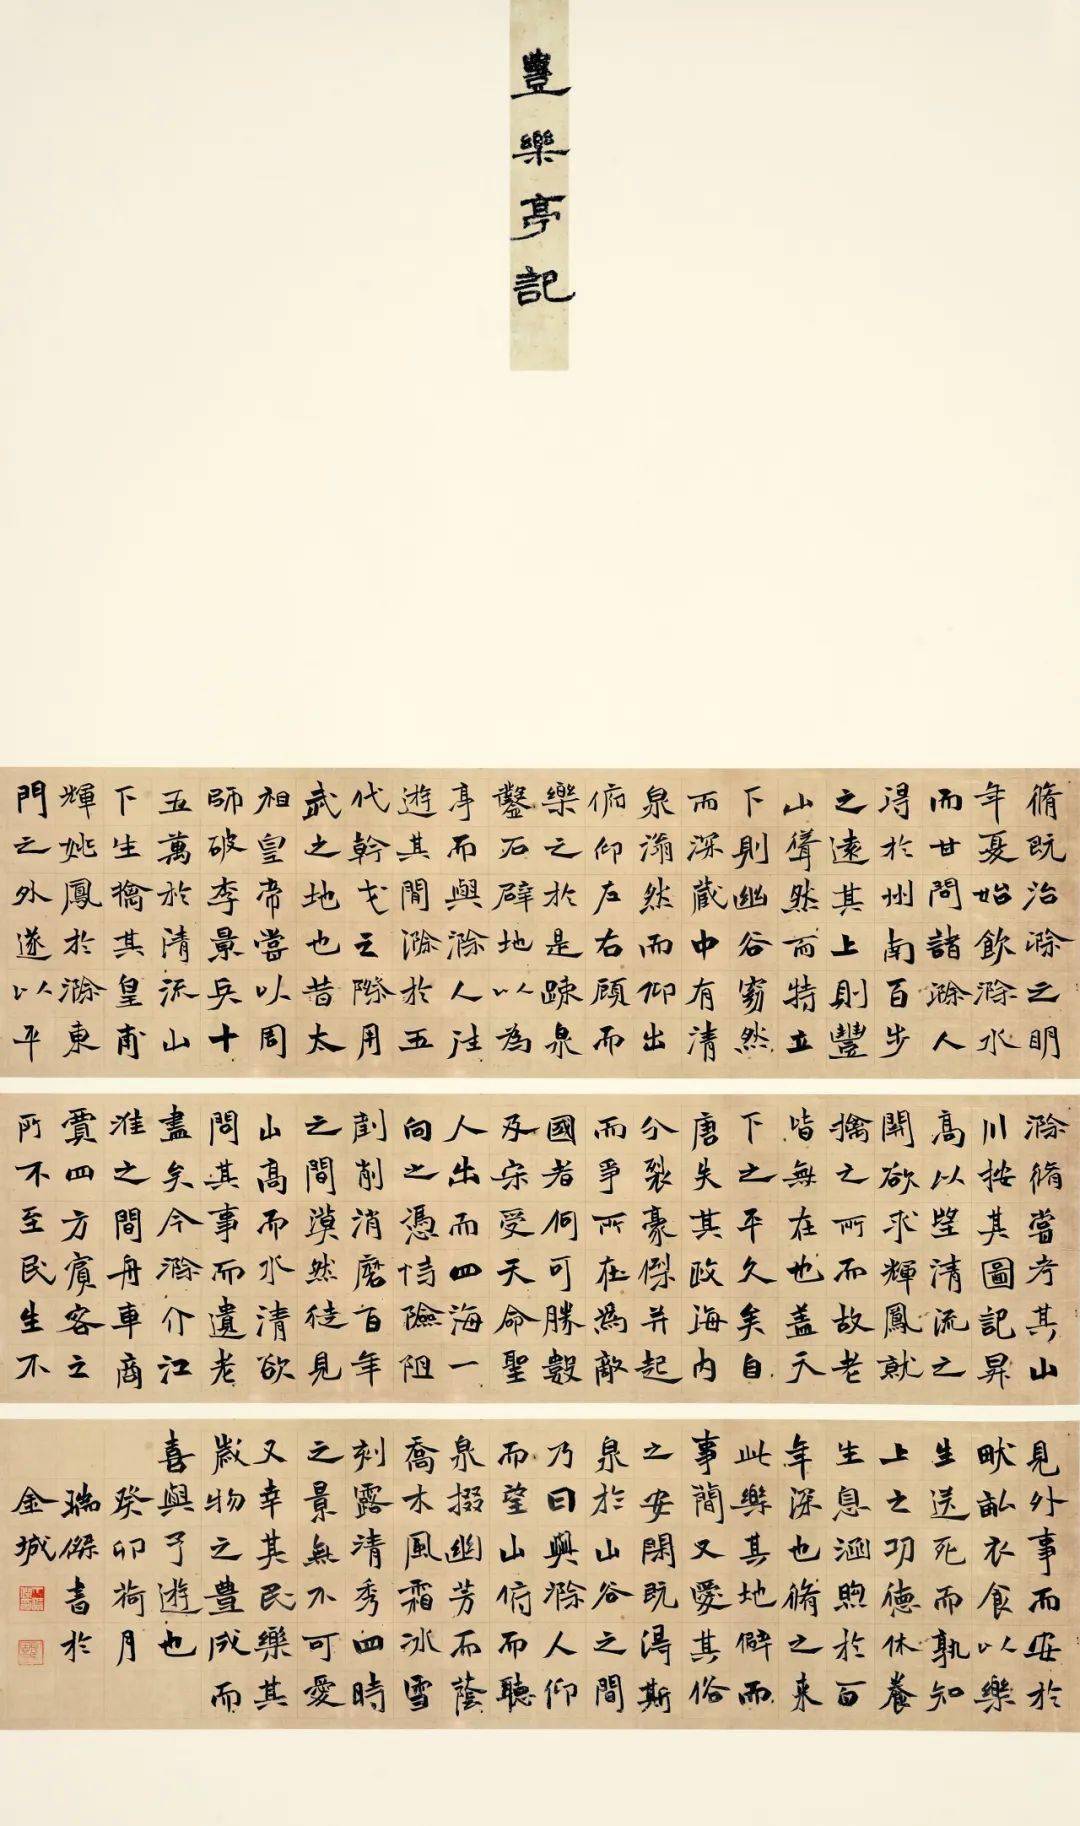 豐樂亭記
脩既治滁之明
年夏始飲滁水
而甘問諸滁人
得於州南百步
之遠其上則豐
山聳然而特立
下則幽谷窈然
而深藏中有清
泉滃然而仰出
俯仰左右顧而
樂之於是疎泉
鑿石辟地以為
亭而與滁人往
遊其間滁於五
代幹戈之際用
武之地也昔太
祖皇帝嘗以周
師破李景兵十
五萬於清流山
下生擒其皇甫
輝姚鳳於滁東
門之外遂以平
滁脩嘗考其山
川按其圖記昇
高以望清流之
關欲求輝鳳就
擒之所而故老
皆無在也蓋天
下之平久矣自
唐失其政海內
分裂豪傑并起
而爭所在為敵
國者何可勝數
及宋受天命聖
人出而四海一
向之憑恃險阻
剷削消磨百年
之間漠然徒見
山高而水清欲
問其事而遺老
盡矣今滁介江
淮之間舟車商
賈四方賓客之
所不至民生不
見外事而安於
畎畝衣食以樂
生送死而孰知
上之功德休養
生息涵煦於百
年深也脩之來
此樂其地僻而
事簡又愛其俗
之安閑既得斯
泉於山谷之間
乃曰與滁人仰
而望山俯而聽
泉掇幽芳而蔭
喬木風霜冰雪
刻露清秀四時
之景無不可愛
又幸其民樂其
歲物之豊成而
喜與予遊也
癸卯荷月
瑞傑書於
金城